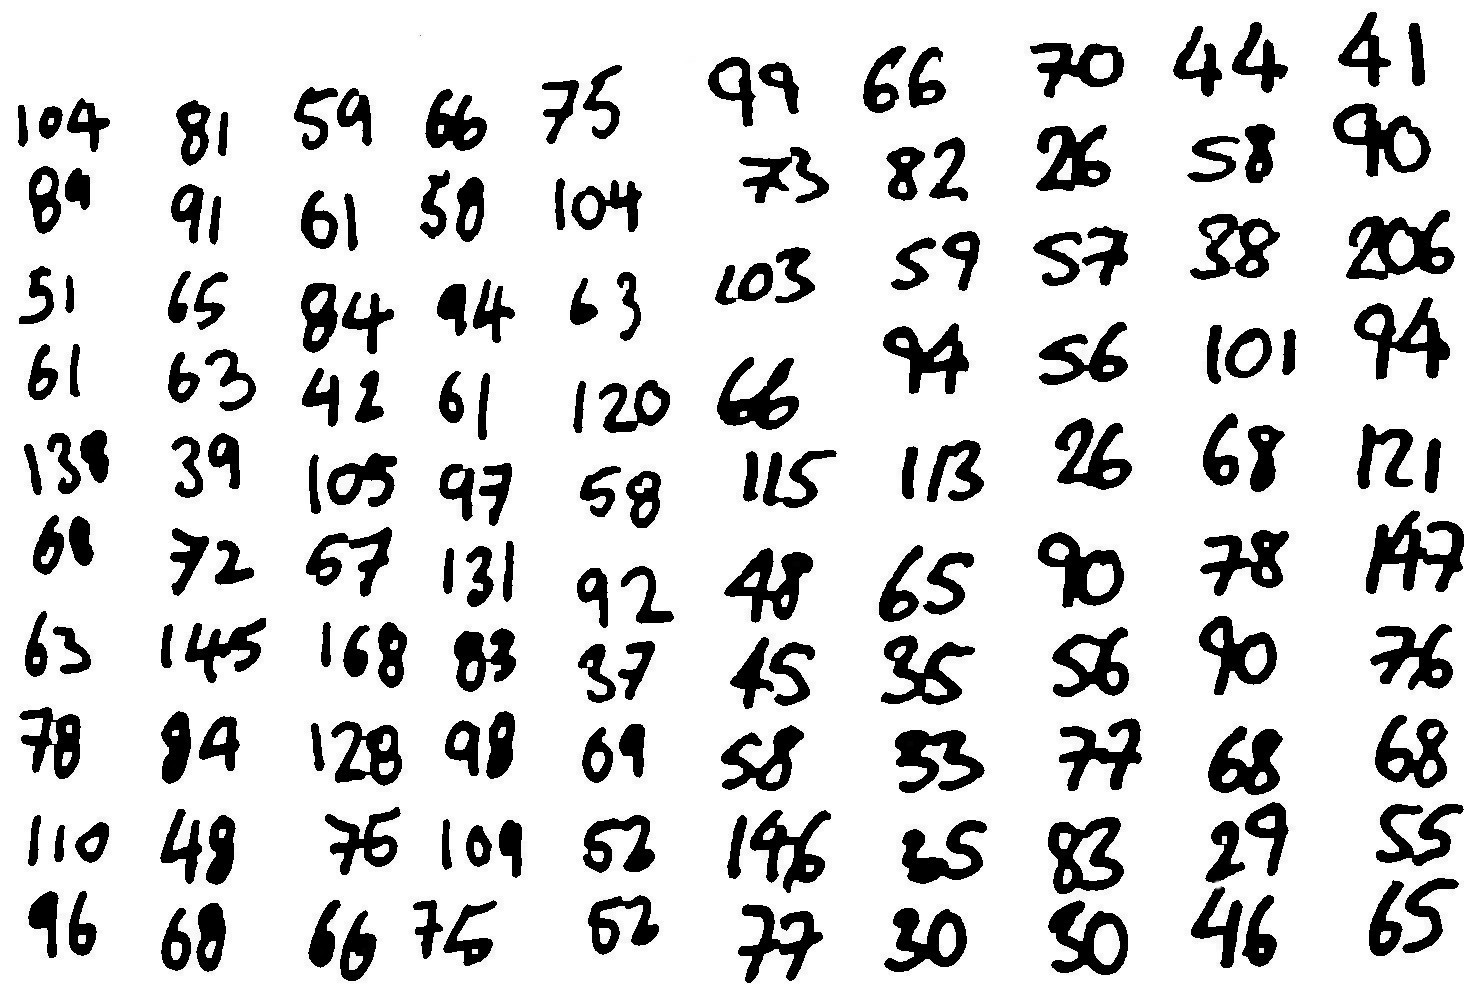 104 81 59 66 75 99 66 70 44 41
89 91 61 58 104 73 82 26 58 90
51 65 84 94 63 103 59 57 38 206
61 63 42 61 120 66 94 56 101 94
138 39 105 97 58 115 113 26 68 121
68 72 57 131 92 48 65 90 78 147
63 145 168 83 37 45 35 56 90 76
78 84 128 98 69 58 33 77 68 68
110 48 75 109 52 146 25 83 29 55
96 68 66 75 52 77 30 50 46 65